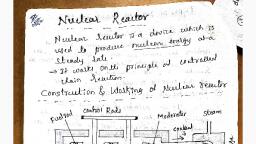 Nuclear Reactor
Nuclear Reactor is a device which is
used to produce nuclear energy at a
steady rate.
→ It works on the principle of controlled
chain reaction.
Construction & Working of Nuclear reactor
Fuel rod control Rods Moderator Steam
coolant